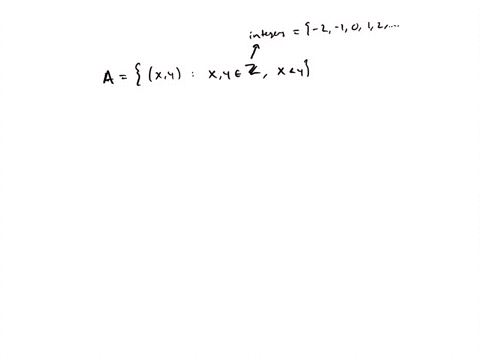 integers = {-2, -1, 0, 1, 2, ....
A = { (x,y) : x,y ∈ ℤ, x<y}